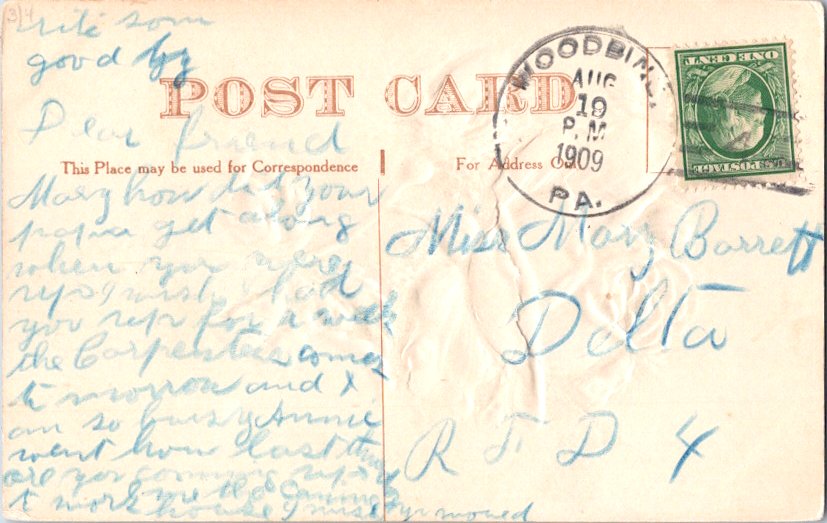 3/4
rite som
good by
POST CARD
WOODBINE,
AUG
19
P.M
1909
PA.
U.S. POSTAGE
ONE CENT
Dear friend
This Place may be used for Correspondence
For Address Only
Mary how did your
papa get along
when you were
up I wish I had
you up for a week
the Carpenters comes
to morrow and I
am so busy Annie
went home last
are you comming up
to work
house I miss you moved
Miss Mary Barrett
Delta
R F D 4